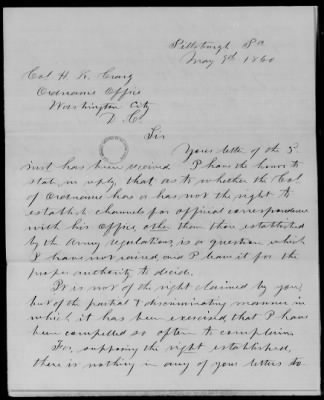 Pittsburgh Pa
May 9th 1860
Col. H. K. Craig
Ordnance Office
Washington City
D. C.
Sir
Your letter of the 5
inst has been received I have the honor to
state in reply, that as to whether the Col
of Ordnance has or has not the right to
establish channels for official correspondence
with his Office, other than those established
by the Army regulations, is a question which
I have not raised, and I leave it for the
proper authority to decide.
It is not of the right claimed by you,
but of the partial & discriminating manner in
which it has been exercised, that I have
been compelled so often to complain.
For, supposing the right established,
there is nothing in any of your letters to